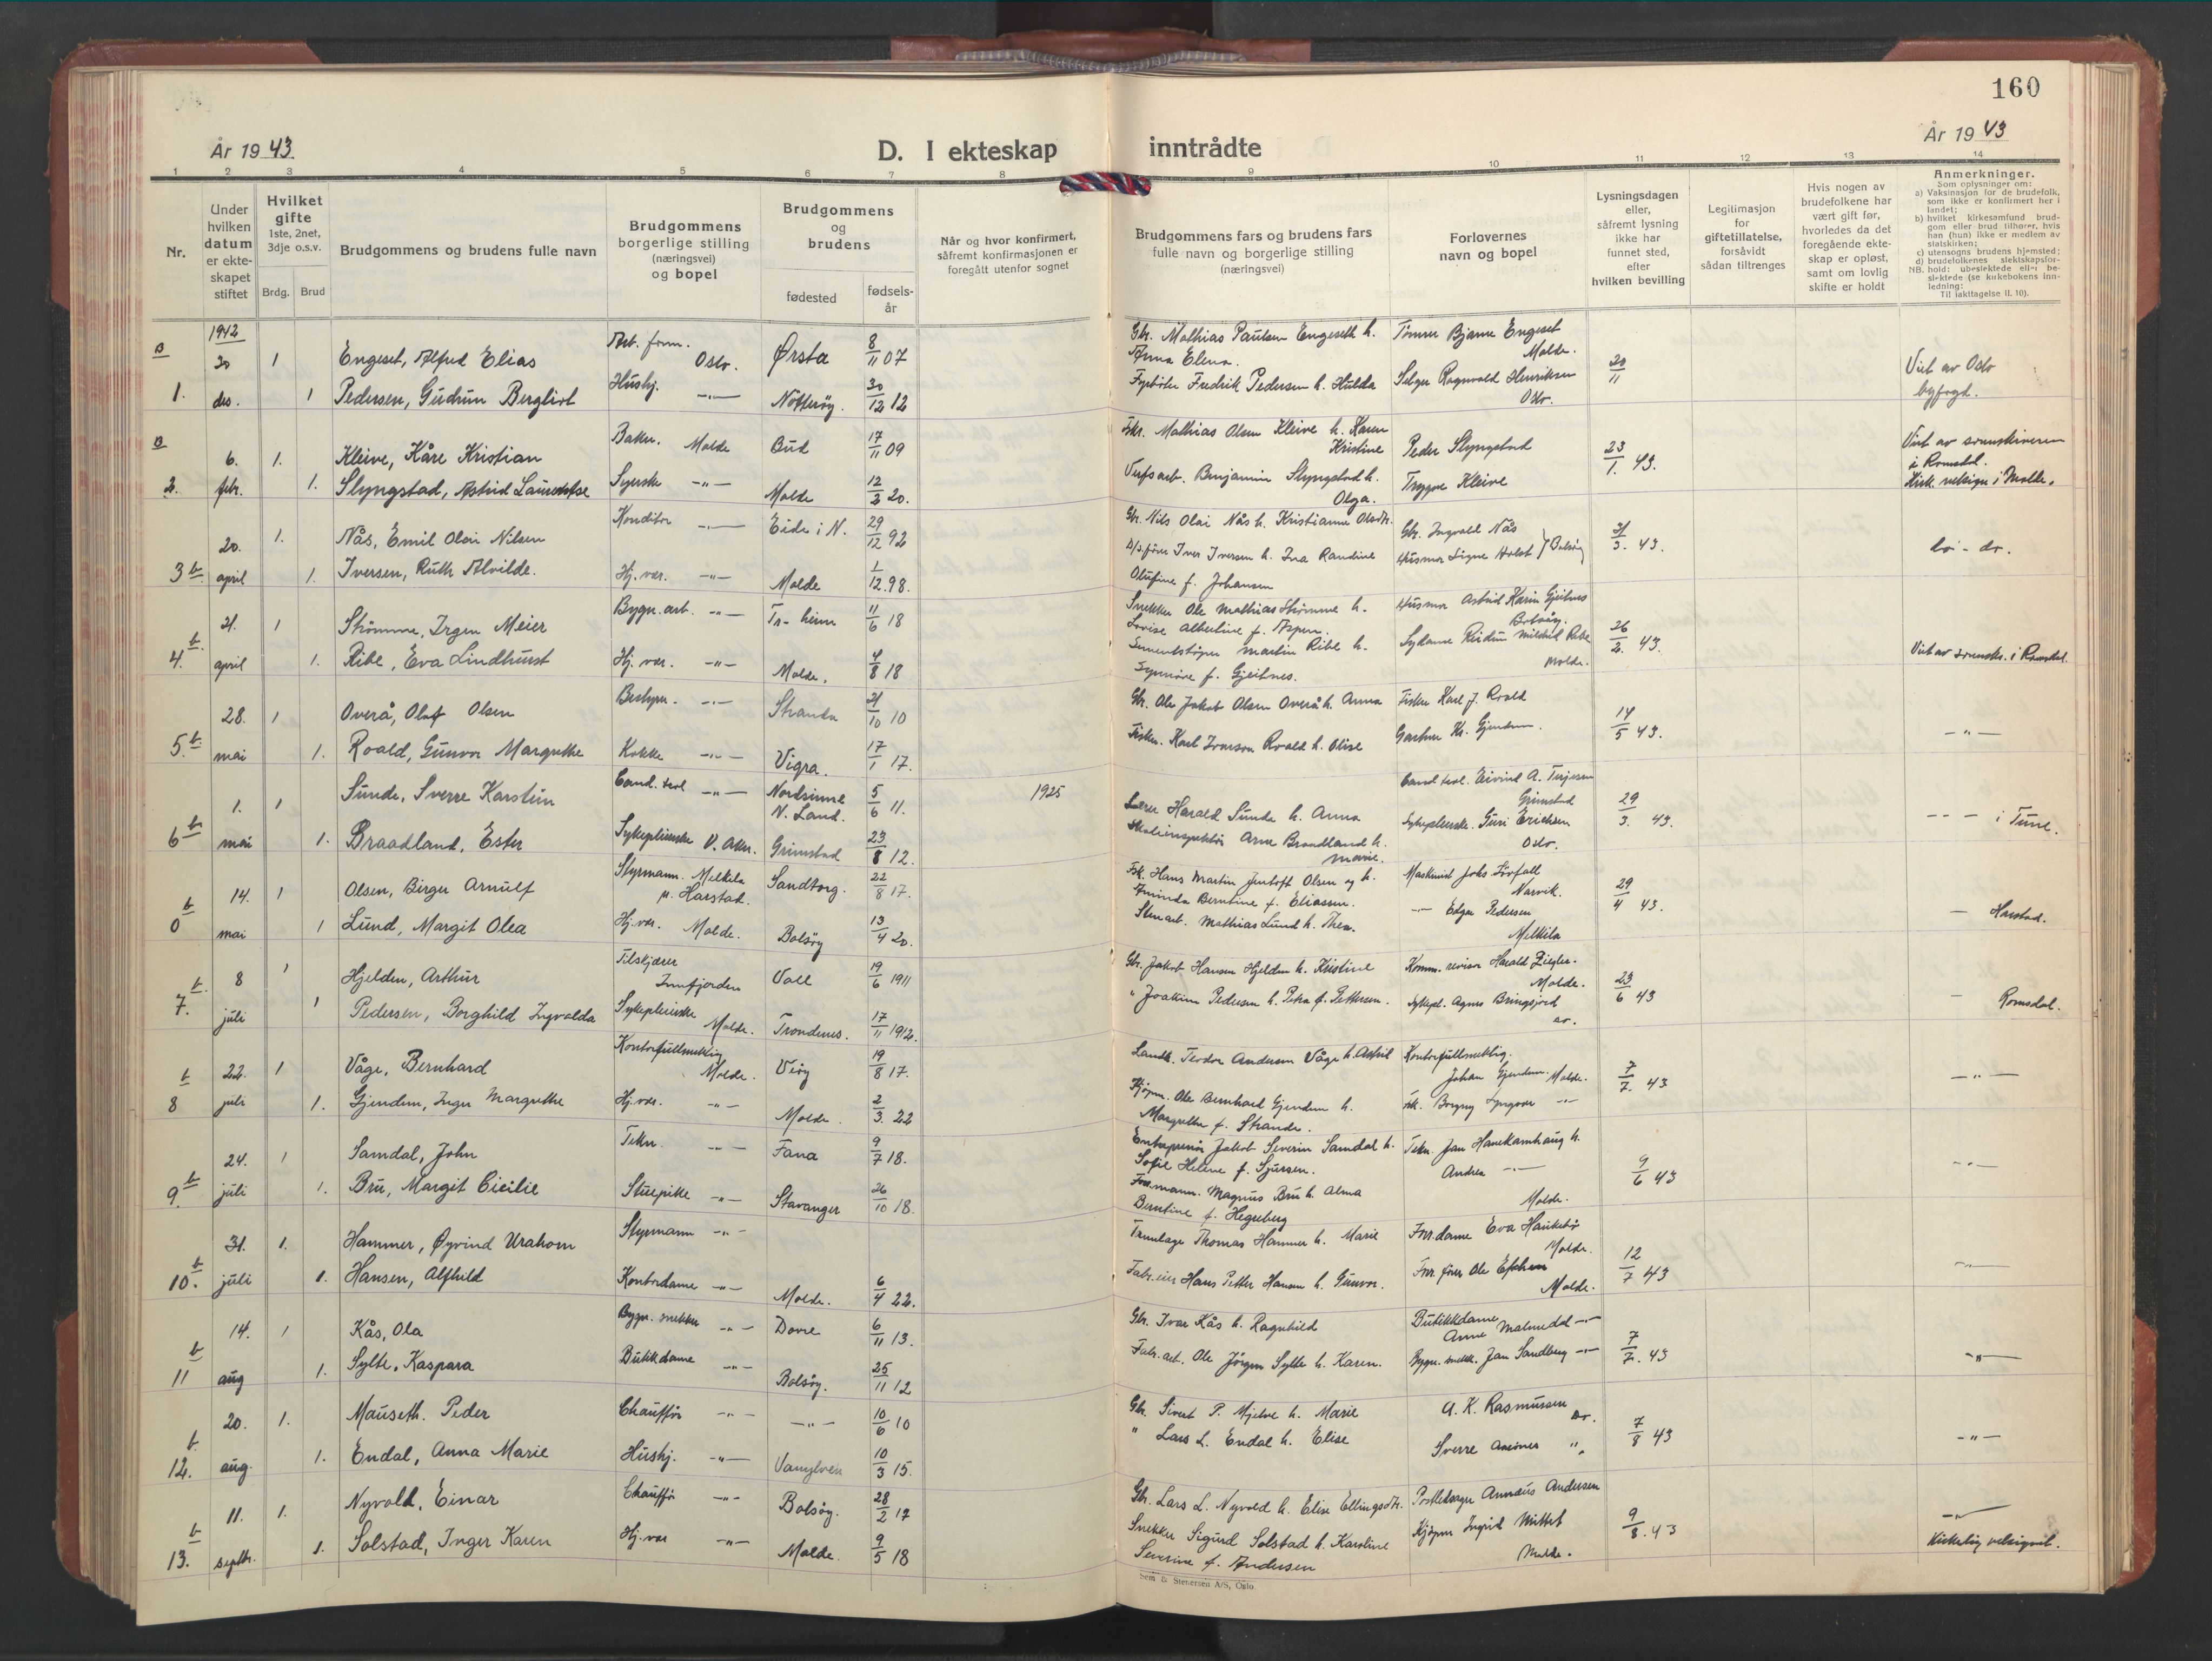 160
År 1943.
D. I ekteskap inntrådte
År 1943
1 2 3 4 5 6 7 8 9 10 11 12 13 14
Nr.
Under hvilken datum er ekteskapet stiftet
Hvilket gifte
1ste, 2net, 3dje o.s.v.
Brdg. Brud
Brudgommens og brudens fulle navn
Brudgommens borgerlige stilling (næringsvei) og bopel
Brudgommens og brudens
fødested
fødsels-år
Når og hvor konfirmert, såfremt konfirmasjonen er foregått utenfor sognet
Brudgommens fars og brudens fars fulle navn og borgerlige stilling (næringsvei)
Forlovernes navn og bopel
Lysningsdagen eller, såfremt lysning ikke har funnet sted, efter hvilken bevilling
Legitimasjon for giftetillatelse, forsåvidt sådan tiltrenges
Hvis nogen av brudefolkene har vært gift før, hvorledes da det foregående ekteskap er opløst, samt om lovlig skifte er holdt
Anmerkninger.
Som oplysninger om:
a) Vaksinasjon for de brudefolk, som ikke er konfirmert her i landet;
b) hvilket kirkesamfund brudgom eller brud tilhører, hvis han (hun) ikke er medlem av statskirken;
c) utensogns brudens hjemsted;
d) brudefolkenes slektskapsforhold: ubeslektede eller beslektede (se kirkebokens innledning:
NB.
Til iakttagelse II. 10).
1942
30 1 Engeset, Alfred Elias Oslo. Ørsta 8/11 07 Gbr. Mathias Paulsen Engeseth h. Anna Elena. Bjarne Engeset Molde. 20/11 Viet av Oslo byfogd.
1. des. 1 Pedersen, Gudrun Bergliot Hushj. -"- Nøtterøy. 30/12 12 Fyrbøter Fredrik Pedersen h. Hulda Selger Ragnvald Henriksen Oslo.
6. 1. Kleive, Kåre Kristian Baker. Molde Bud 17/11 09 Mathias Olsen Kleive h. Karen Kristine Peder Slyngstad 23/1. 43. Viet av sorenskriveren i Romsdal.
2. febr. 1. Slyngstad, Astrid Syerske -"- Molde 12/3 20. Benjamin Slyngstad h. Olga. Trygve Kleive Kirk. velsign. i Molde.
20. 1. Nås, Emil Olai Nilsen Konditor -"- Eide i N. 29/12 92 Gbr. Nils Olai Nås h. Kristianne Olsdtr. Gbr. Ingvald Nås 31/3. 43.
3 b april 1. Iversen, Ruth Alvilde. Hj. vær. -"- Molde 1/12. 98. Iver Iversen h. Ina Randine Olufine f. Johansen Husmor Signe Holst Bolsøy
21. 1 Strømme, Irgen Meier Bygn. arb. -"- Tr-heim 11/6 18 Snekker Ole Mathias Strømme h. Lovise Albertine f. Aspen. Husmor Astrid Karin Gjeitnes Bolsøy. 26/2. 43.
4. b april 1. Ribe, Eva Lindhurst Hj. vær. -"- Molde. 4/8 18 Sementstøper Martin Ribe h. f. Gjeitnes. Sydame Reidun Mildrid Ribe Molde. Viet av sorensks. i Romsdal.
28. 1 Overå, Olaf Olsen Bestyrer. -"- Stranda 21/10 10 Gbr. Ole Jakob Olsen Overå h. Anna Fisker Karl J. Roald 14/5 43. -"-
5 b mai 1. Roald, Gunvor Margrethe Kokke -"- Vigra. 17/1 17. Fisker. Karl Ivarson Roald h. Olise Gartner Kr. Gjendem.
1. 1 Sunde, Sverre Karstein Cand. teol -"- Nordsinne N. Land. 5/6 11. 1925 Lærer Harald Sunde h. Anna Cand. teol. Eivind A. Terjesen Grimstad 29/3. 43. i Tune.
6 b mai 1. Braadland, Ester Sykepleierske V. Aker. Grimstad 23/8 12. Skoleinspektør Arne Braadland h. Marie. Sykepleierske. Guri Erichsen Oslo.
14. 1 Olsen, Birger Arnulf Styrmann. Melkila p. Harstad. Sandtorg. 22/8 17. Fsk. Hans Martin Jentoft Olsen og h. Berntine f. Eliassen. Maskinist Johs Narvik. 29/4 43. Harstad.
0 b mai 1 Lund, Margit Olea Hj. vær. Molde. Bolsøy 13/4 20. Mathias Lund h. Thea. -"- Edgar Pedersen Melkila
8 1 Hjelden, Arthur Innfjorden Voll 19/6 1911 Gbr. Jakob Hansen Hjelden h. Kristine Komm. revisor Harald Ziegler. Molde. 23/6 43 Romsdal.
7. b. juli 1 Pedersen, Borghild Ingvalda Sykepleierske Molde. Trondenes. 17/11 1912. " Joakim Pedersen h. Petra f. Pettersen. Sykepl. Agnes
22. 1 Våge, Bernhard Kontorfullmektig Molde. 19/8 17. Landh. Teodor Andersen Våge h. Kontorfullmektig. Johan Gjendem. Molde. 7/7. 43 -"-
8 b juli 1. Gjendem, Inger Margrethe Hj. vær. -"- Molde. 2/3. 22 Kjøpm. Ole Bernhard Gjendem h. Margrethe f. Strande. Frk. Borgny -"-
24. 1 Samdal, John Tekn. -"- Fana 9/7 18. Entreprenør Jakob Severin Samdal h. Sofie Helene f. Sjursen. Tekn. Jan Hanekamhaug h. Andrea -"- Molde. 9/6 43 -"-
9. b juli 1. Bru, Margit Cicilie Stuepike -"- Stavanger 26/10 18. Formann. Magnus Bru h. Alma Berntine f. Hegreberg
31. 1. Hammer, Øyvind Urahorn Styrmann -"- Thomas Hammer h. Marie Forr. dame Eva Haukebø Molde. 12/7 43 -"-
10. b juli 1. Hansen, Alfhild Kontordame -"- Molde. 6/4 22. Fabr. eier Hans Petter Hansen h. Gunvor. Forr. fører Ole Molde.
14. 1 Kås, Ola Bygn. snekker -"- Dovre 6/11 13. Gbr. Ivar Kås h. Ragnhild Butikkdame Anne Malmedal -"- 7/7. 43 -"-
11 b aug 1. Sylte, Kaspara Butikkdame -"- Bolsøy. 25/11 12 Fabr. arb. Ole Jørgen Sylte h. Karen. Bygn. snekk. Jan Sandberg -"-
20. 1. Mauseth. Peder Chauffør -"- -"- 10/6 10 Gbr. Sivert P. Mjelve h. Marie A. K. Rasmussen do. 7/8 43 -"-
12. b aug. 1. Endal, Anna Marie Hushj. -"- Vanylven 10/3 15. " Lars L. Endal h. Elise Sverre "
11. 1. Nyvold, Einar Chauffør -"- Bolsøy. 28/2 17 Gbr. Lars L. Nyvold h. Elise Ellingsdtr. Annæus Andersen 9/8. 43 -"-
13. b septbr. 1. Solstad, Inger Karen Hj. vær -"- Molde. 9/5 18 Snekker Sigurd Solstad h. Karoline Severine f. Andersen Kjøpm Ingrid Mittet Molde. Kirkelig velsignet.
Sem & Stenersen A/S, Oslo.